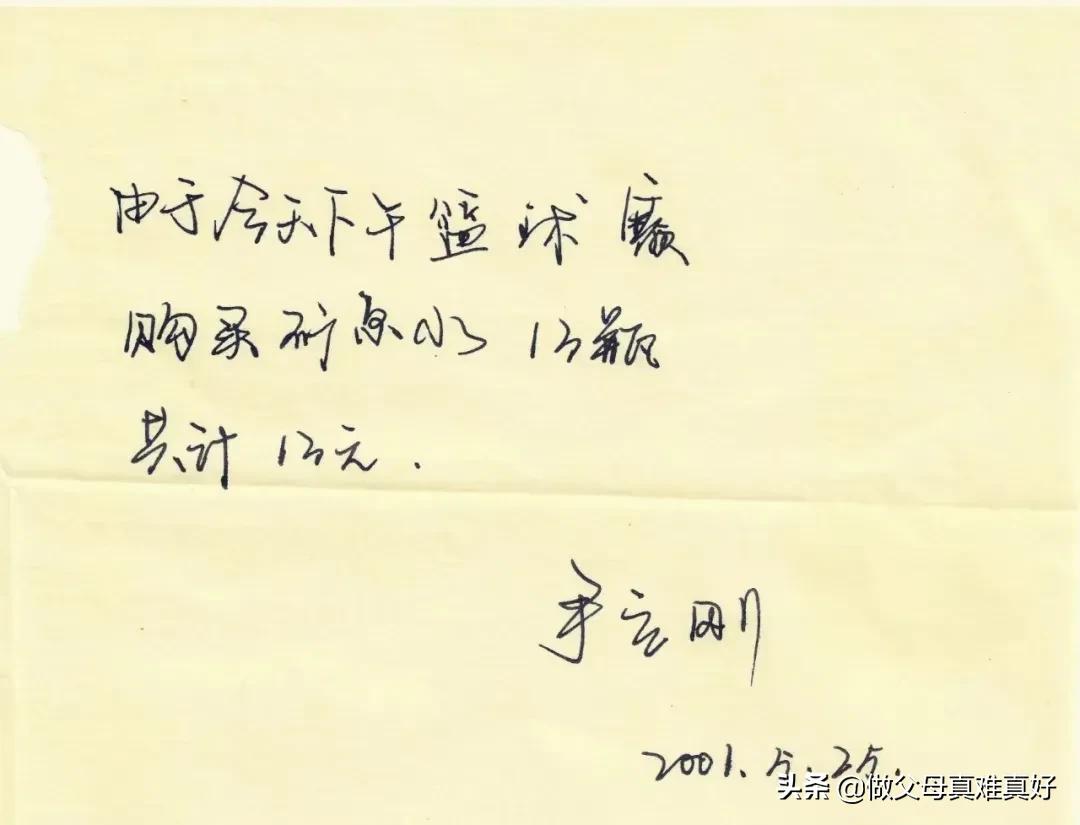 由于今天下午篮球赛
购买矿泉水13瓶
共计13元.
李立刚
2001.5.25.
头条 @做父母真难真好